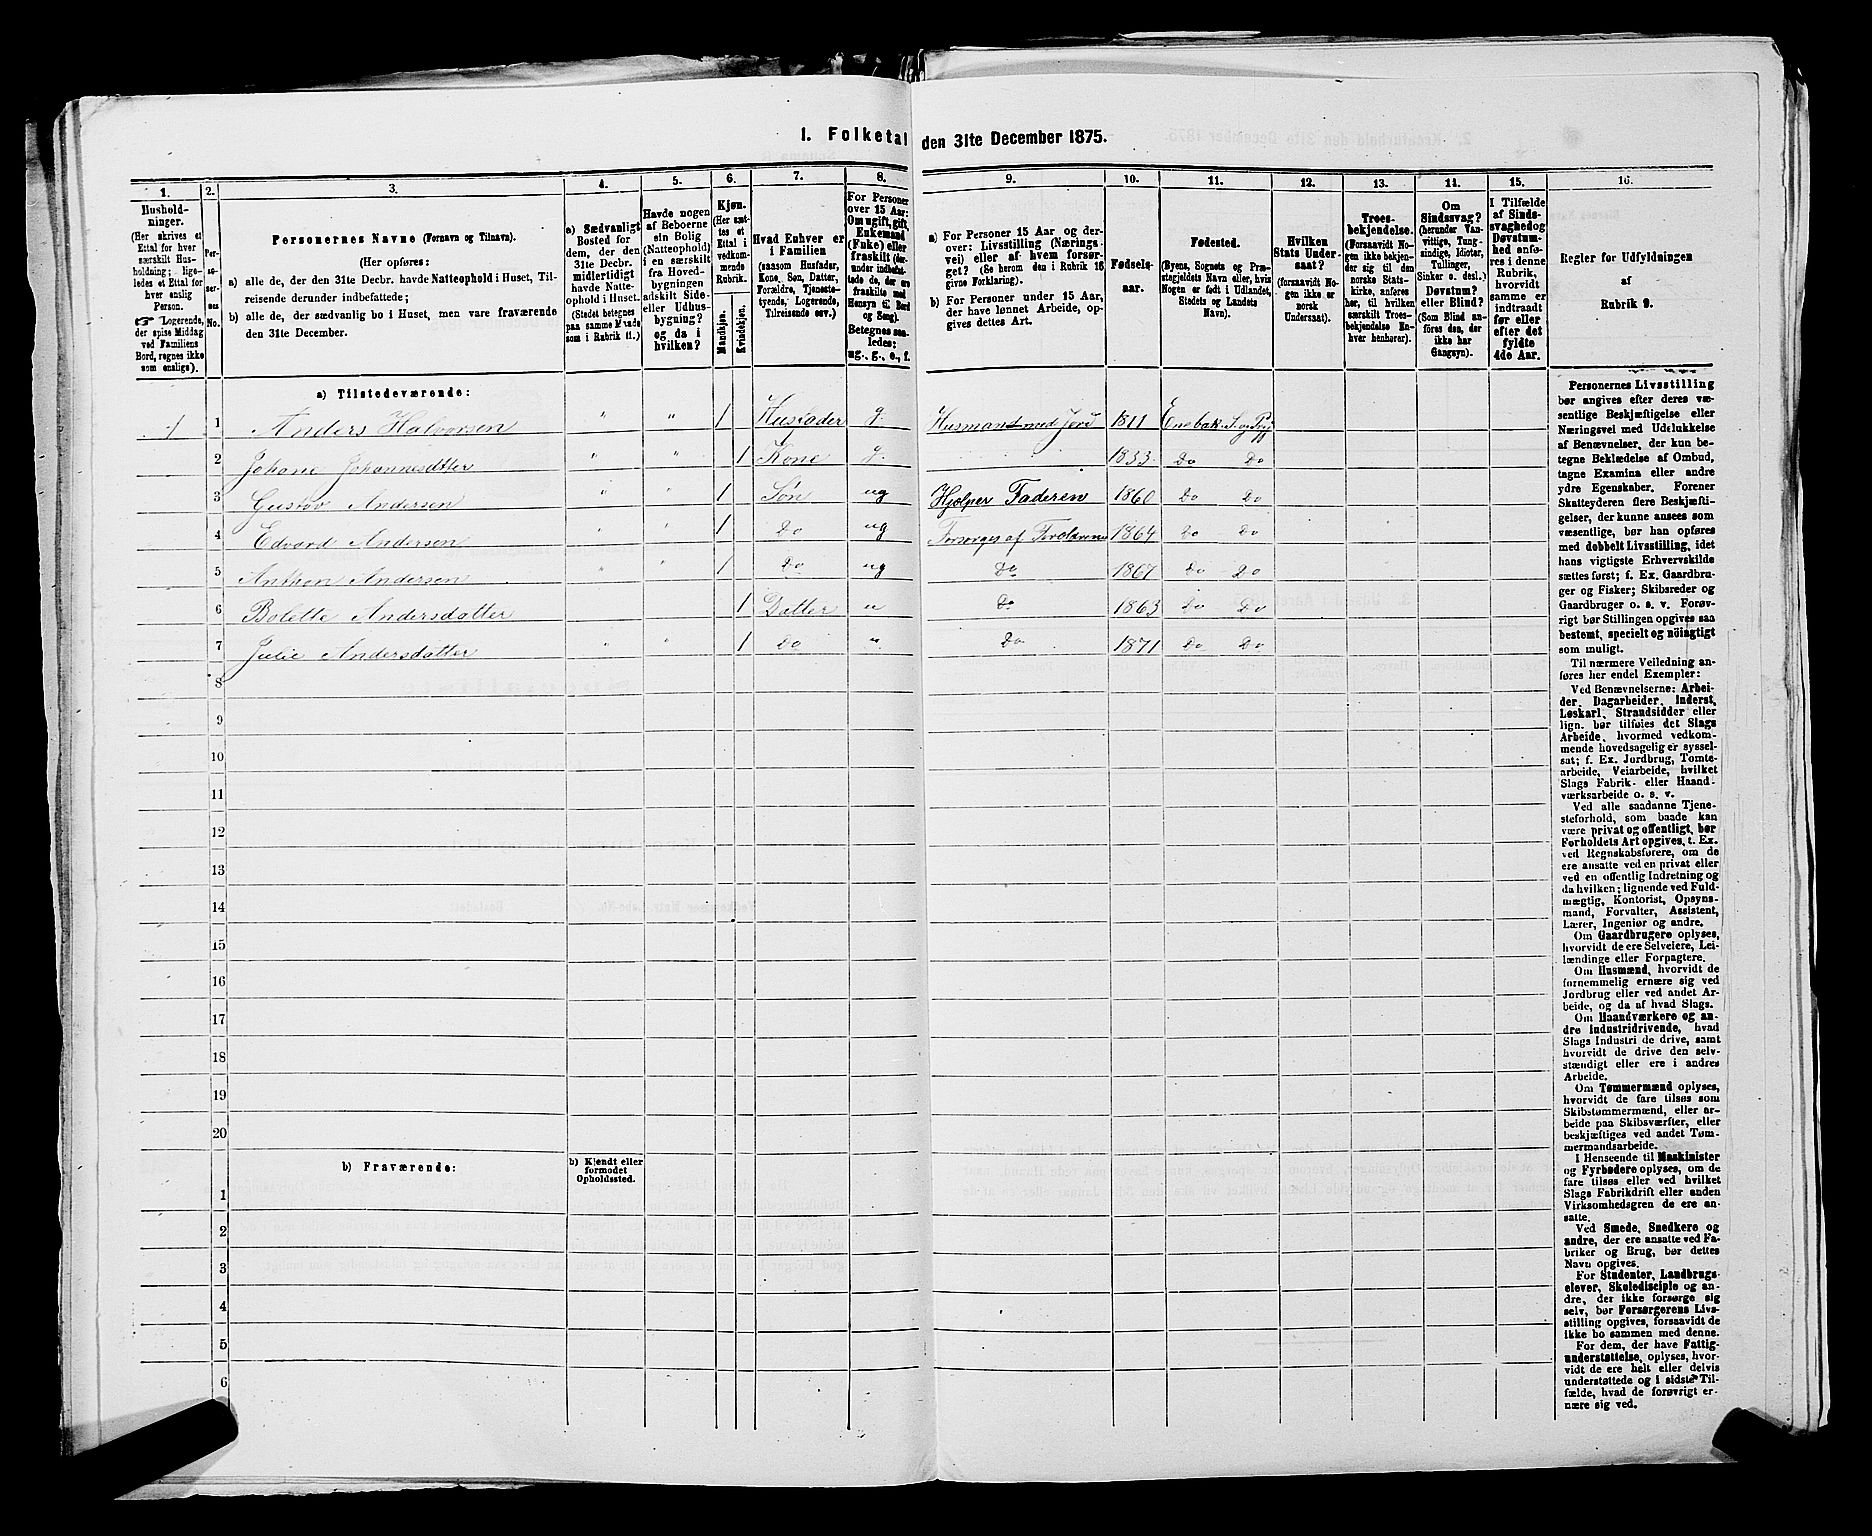 1. Folketal den 31te December 1875.
1. 2. 3. 4. 5. 6. 7. 8. 9. 10. 11. 12. 13. 14. 15. 16.
Hushold-
ninger.
(Her skrives et
Ettal for hver
særskilt Hus-
holdning; lige-
ledes et Ettal for
hver enslig
Person.
☞ Logerende,
der spise Middag
ved Familiens
Bord, regnes ikke
som enslige).
Per-
so-
ner-
nes
No.
Personernes Navne (Fornavn og Tilnavn).
(Her opføres:
a) alle de, der den 31te Decbr. havde Natteophold i Huset, Til-
reisende derunder indbefattede;
b) alle de, der sædvanlig bo i Huset, men vare fraværende
den 31te December.
a) Sædvanligt
Bosted for
dem, der den
31te Decbr.
midlertidigt
havde Natte-
ophold i Huset.
(Stedet betegnes
paa samme Maade
som i Rubrik 11.)
Havde nogen
af Beboerne
sin Bolig
(Natteophold)
i en særskilt
fra Hoved-
bygningen
adskilt Side-
eller Udhus-
bygning?
og da i
hvilken?
Kjøn.
(Her sæt-
tes et
Ettal i
vedkom-
mende
Rubrik.
Mandkjøn.
Kvindekjøn.
Hvad Enhver er
i Familien
(saasom Husfader,
Kone, Søn, Datter,
Forældre, Tjeneste-
tyende, Logerende,
Tilreisende osv.)
For Personer
over 15 Aar:
Om ugift, gift,
Enkemand
(Enke) eller
fraskilt (der-
under indbefat-
tede de, der ere
fraskilte med
Hensyn til Bord
og Seng).
Betegnes saa-
ledes:
ug., g., e., f.
a) For Personer 15 Aar og der-
over: Livsstilling (Nærings-
vei) eller af hvem forsør-
get? (Se herom den i Rubrik 16
givne Forklaring).
b) For Personer under 15 Aar,
der have lønnet Arbeide, op-
gives dettes Art.
Fødsels-
aar.
Fødested.
(Byens, Sognets og Præ-
stegjeldets Navn eller, hvis
Nogen er født i Udlandet,
Stedets og Landets
Navn).
Hvilken
Stats Under-
saat?
(forsaavidt No-
gen ikke er
norsk
Undersaat).
Troes-
bekjendelse.
(Forsaavidt No-
gen ikke bekjen-
der sig til den
norske Stats-
kirke, anføres
her, til hvilken
særskilt Troes-
bekjendelse En-
hver henhører).
Om
Sindssvag?
(herunder Van-
vittige, Tung-
sindige, Idioter,
Tullinger,
Sinker o. desl.)
Døvstum?
eller Blind?
(Som Blind an-
føres den, der
ikke har
Gangsyn).
I Tilfælde
af Sinds-
svaghed og
Døvstum-
hed anfø-
res i denne
Rubrik,
hvorvidt
samme er
indtraadt
før eller
efter det
fyldte
4de Aar.
Regler for Udfyldningen
af
Rubrik 9.
a) Tilstedeværende:
1 1 Anders Halvorsen " " 1 Husfader g. Husmand med Jord 1811
2 Johane Johannesdatter " " 1 Kone g. 1833 Do Do
3 Gustav Andersen " " 1 Søn ug Hjælper Faderen 1860 Do Do
4 Edvard Andersen " " 1 Do ug Forsørges af Forældrene 1864 Do Do
5 Anthon Andersen " " 1 Do ug Do 1867 Do Do
6 Bolette Andersdatter 1 Datter u Do 1863 Do Do
7 Julie Andersdatter " " 1 Do " Do 1871 Do Do
8
9
10
11
12
13
14
15
16
17
18
19
20
b) Fraværende:
b) Kjendt eller
formodet
Opholdssted.
1
2
3
4
5
6
Personernes Livsstilling
bør angives efter deres væ-
sentlige Beskjæftigelse eller
Næringsvei med Udelukkelse
af Benævnelser, der kun be-
tegne Beklædelse af Ombud,
tagne Examina eller andre
ydre Egenskaber. Forener
Skatteyderen flere Beskjæfti-
gelser, der kunne ansees som
væsentlige, bør han opføres
med dobbelt Livsstilling, idet
hans vigtigste Erhvervskilde
sættes først; f. Ex. Gaardbru-
ger og Fisker; Skibsreder og
Gaardbruger o. s. v. Forøv-
rigt bør Stillingen opgives saa
bestemt, specielt og nøiagtigt
som muligt.
Til nærmere Veiledning an-
føres her endel Exempler:
Ved Benævnelserne: Arbei-
der, Dagarbeider, Inderst,
Løskarl, Strandsidder eller
lign. bør tilføies det Slags
Arbeide, hvormed vedkom-
mende hovedsagelig er syssel-
sat; f. Ex. Jordbrug, Tomte-
arbeide, Veiarbeide, hvilket
Slags Fabrik- eller Haand-
værksarbeide o. s. v.
Ved alle saadanne Tjene-
steforhold, som baade kan
være privat og offentligt, bør
Forholdets Art opgives, t. Ex.
ved Regnskabsførere, om de
ere ansatte ved en privat eller
ved en offentlig Indretning og
da hvilken; lignende ved Fuld-
mægtig, Kontorist, Opsyns-
mand, Forvalter, Assistent,
Lærer, Ingeniør og andre.
Om Gaardbrugere oplyses,
hvorvidt de ere Selveiere, Lei-
lændinge eller Forpagtere.
Om Husmænd, hvorvidt de
fornemmelig ernære sig ved
Jordbrug eller ved andet Ar-
beide, og da af hvad Slags.
Om Haandværkere og an-
dre Industridrivende, hvad
Slags Industri de drive, samt
hvorvidt de drive den selv-
stændigt eller ere i andres
Arbeide.
Om Tømmermænd oplyses,
hvorvidt de fare tilsøs som
Skibstømmermænd, eller ar-
beide paa Skibsværfter, eller
beskjæftiges ved andet Tøm-
mermandsarbeide.
I Henseende til Maskinister
og Fyrbødere oplyses, om de
fare tilsøs eller ved hvilket
Slags Fabrikdrift eller anden
Virksomhedsgren de ere an-
satte.
Ved Smede, Snedkere og
andre, der ere ansatte ved Fa-
briker og Brug, bør dettes
Navn opgives.
For Studenter, Landbrugs-
elever, Skoledisciple og an-
dre, der ikke forsørge sig
selv, bør Forsørgerens Livs-
stilling opgives, forsaavidt de
ikke bo sammen med denne.
For dem, der have Fattig-
understøttelse, oplyses, hvor-
vidt de ere helt eller delvis
understøttede og i sidste Til-
fælde, hvad de forøvrigt er-
nære sig ved.